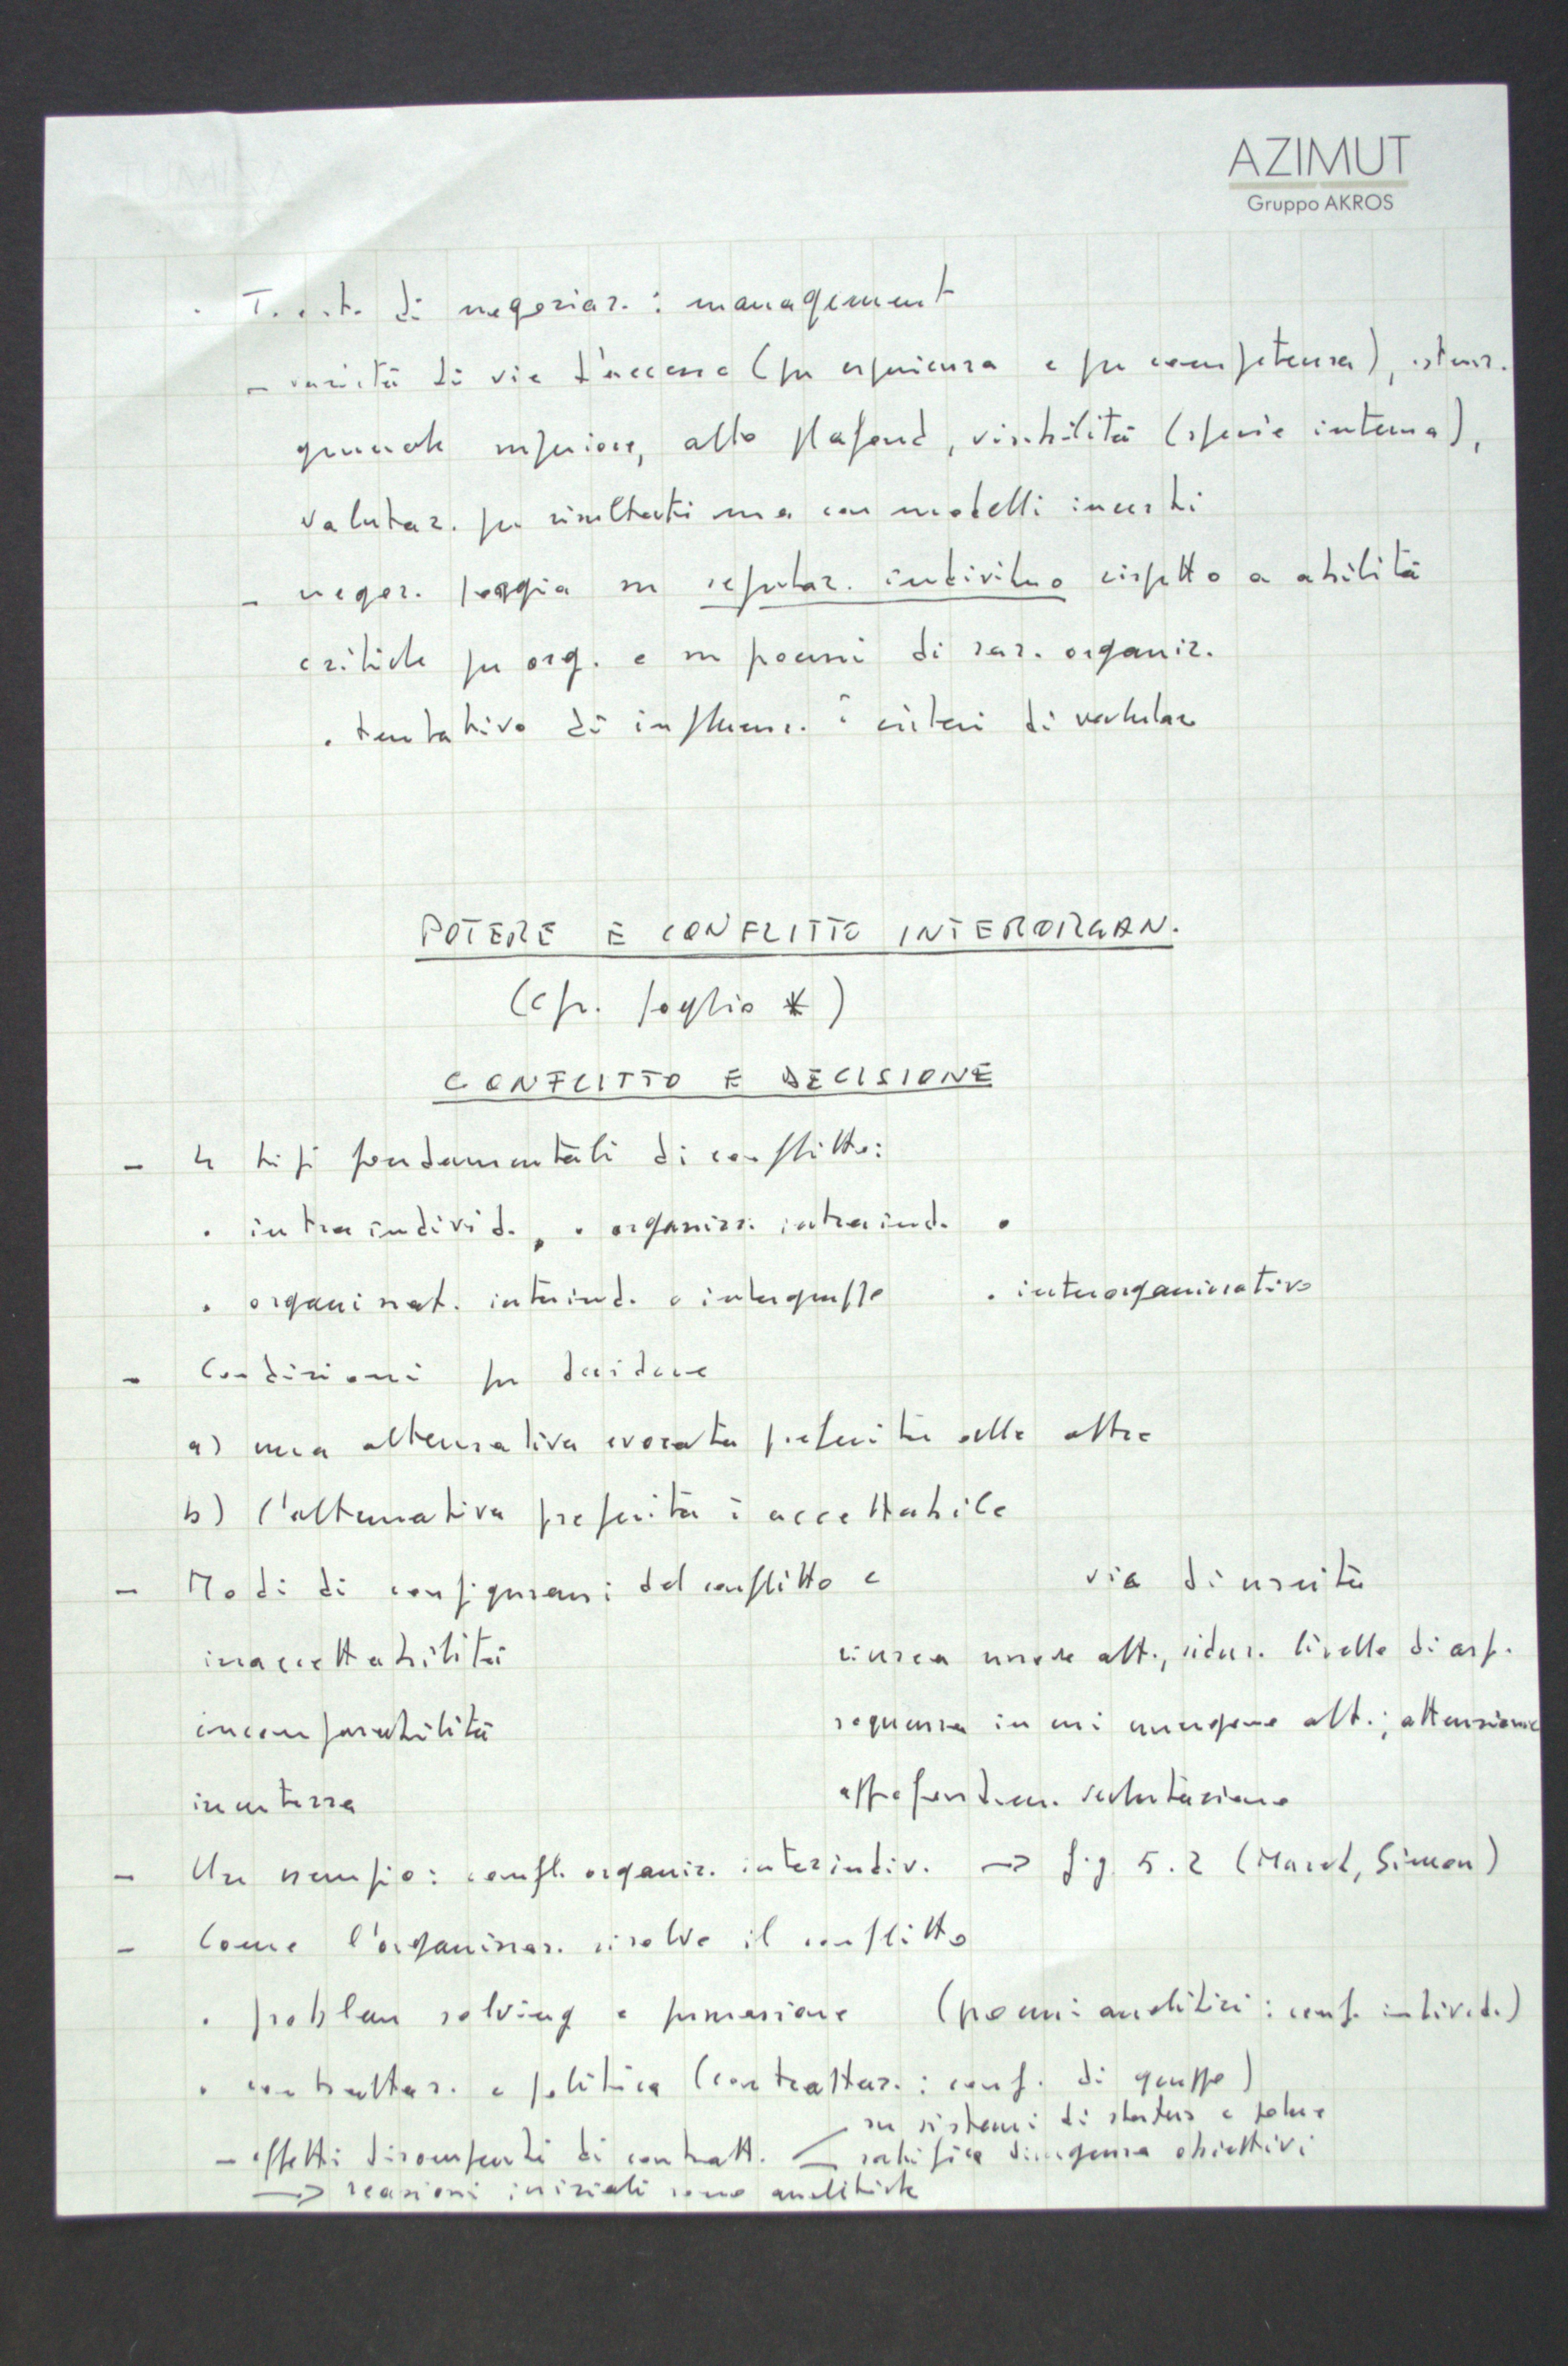 AZIMUT
Gruppo AKROS
. T. d. t. di negoziaz. : management
- varietà di vie d'accesso (per esperienza e per competenza), istruz.
generale superiore, alto plafond, visibilità (specie interna),
valutaz. per risultati ma con modelli incerti
- negoz. poggia su reputaz. individuo rispetto a abilità
critiche per org. e su processi di raz. organiz.
. tentativo di influenz. i criteri di valutaz
POTERE E CONFLITTO INTERORGAN.
(cfr. foglio *)
CONFLITTO E DECISIONE
- 4 tipi fondamentali di conflitto:
. intraindivid. , . organizz. intraind. .
. organizzat. interind. e intergruppo . interorganizzativo
- Condizioni per decidere
a) una alternativa evocata preferita alle altre
b) l'alternativa preferita è accettabile
- Modi di configurarsi del conflitto e via di uscita
inaccettabilità ricerca nuove alt., riduz. livello di asp.
incomparabilità sequenza in cui emergono alt. ; attenzione
incertezza approfondim. valutazione
- Un esempio: confl. organiz. interindiv. -> fig 5.2 (March, Simon)
- Come l'organizzaz. risolve il conflitto
. problem solving e persuasione (processi analitici : conf. individ.)
. contrattaz. e politica (contrattaz. : conf. di gruppo)
su sistemi di status e potere
- effetti dirompenti di contratt. ratifica divergenza obiettivi
-> reazioni iniziali sono analitiche